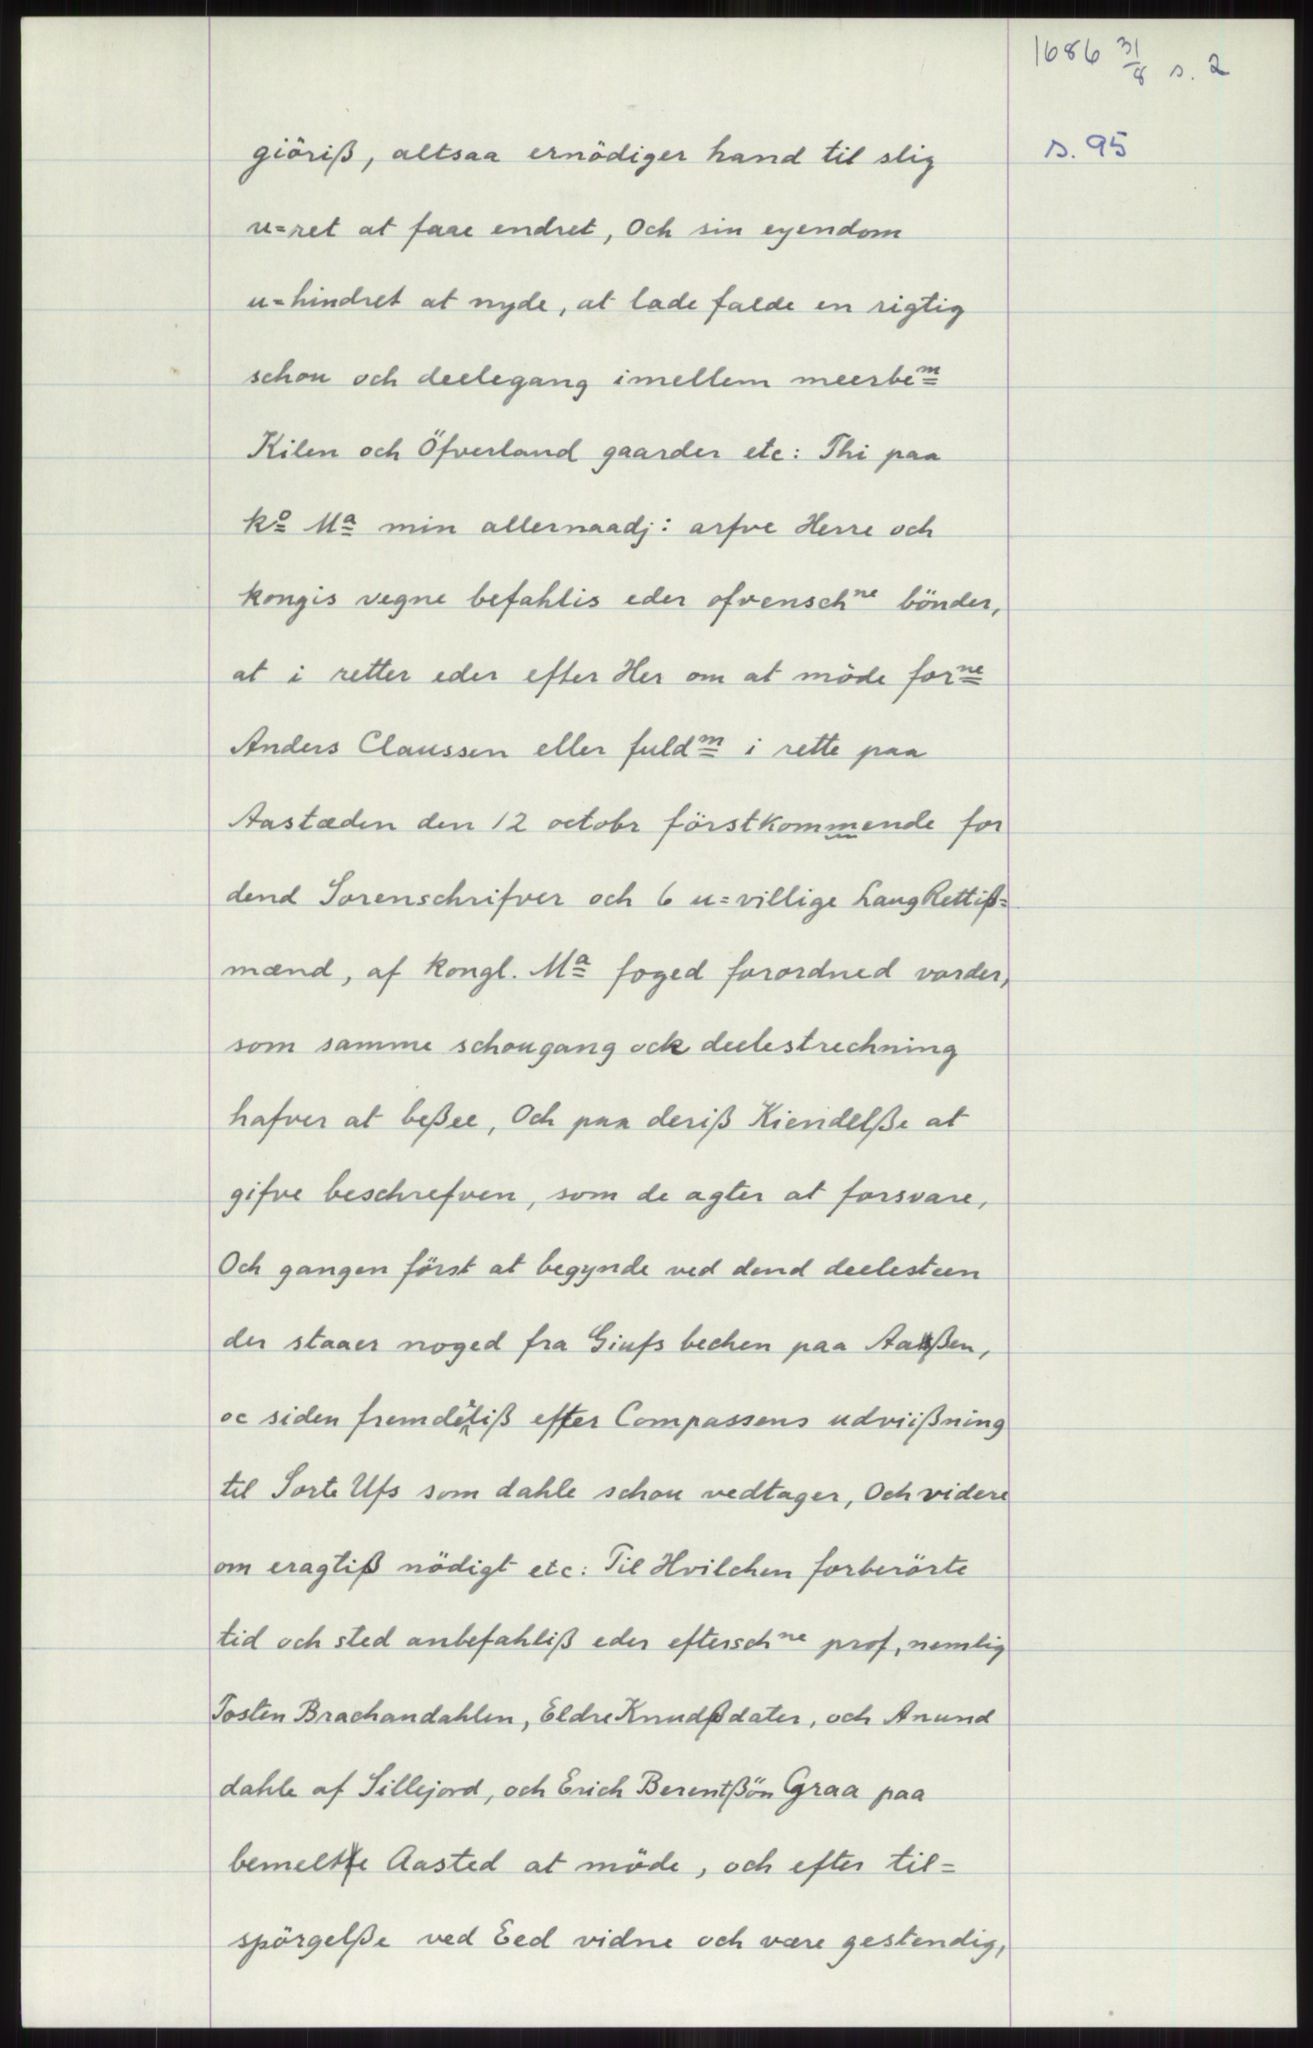 1686 31/8 s. 2
s. 95
giöriß, altsaa ernödiger hand til slig
u=ret at faae endret, Och sin eyendom
u=hindret at nyde, at lade falde en rigtig
schou och deelegang imellem meerbem
Kilen och Öfverland gaarder etc: Thi paa
ko Ma min allernaadj: arfve Herre och
kongis vegne befahlis eder ofvenschne bönder,
at i retter eder efter Her om at möde forne
Anders Claussen eller fuldm i rette paa
Aastæden den 12 octobr förstkommende for
dend Sorenschrifver och 6 u=villige LaugRettiß=
mænd, af kongl. Ma foged forordned vorder,
som samme schougang ock deelestrechning
hafver at beßee, Och paa deriß Kiendelße at
gifve beschrefven, som de agter at forsvare,
Och gangen först at begynde ved dend deelesteen
der staaer noged fra Giufs bechen paa Aaßen,
oc siden fremdeliß efter Compassens udviißning
til Sorte Ufs som dahle schou vedtager, Och videre
om eragtiß nödigt etc: Til Hvilchen forberörte
tid och sted anbefahliß eder efterschne prof, nemlig
Tosten Brachandahlen, Eldre Knudßdater, och Anund
dahle af Sillejord, och Erich Berentßön Graa paa
bemelte Aasted at möde, och efter til=
spörgelße ved Eed vidne och være gestendig,